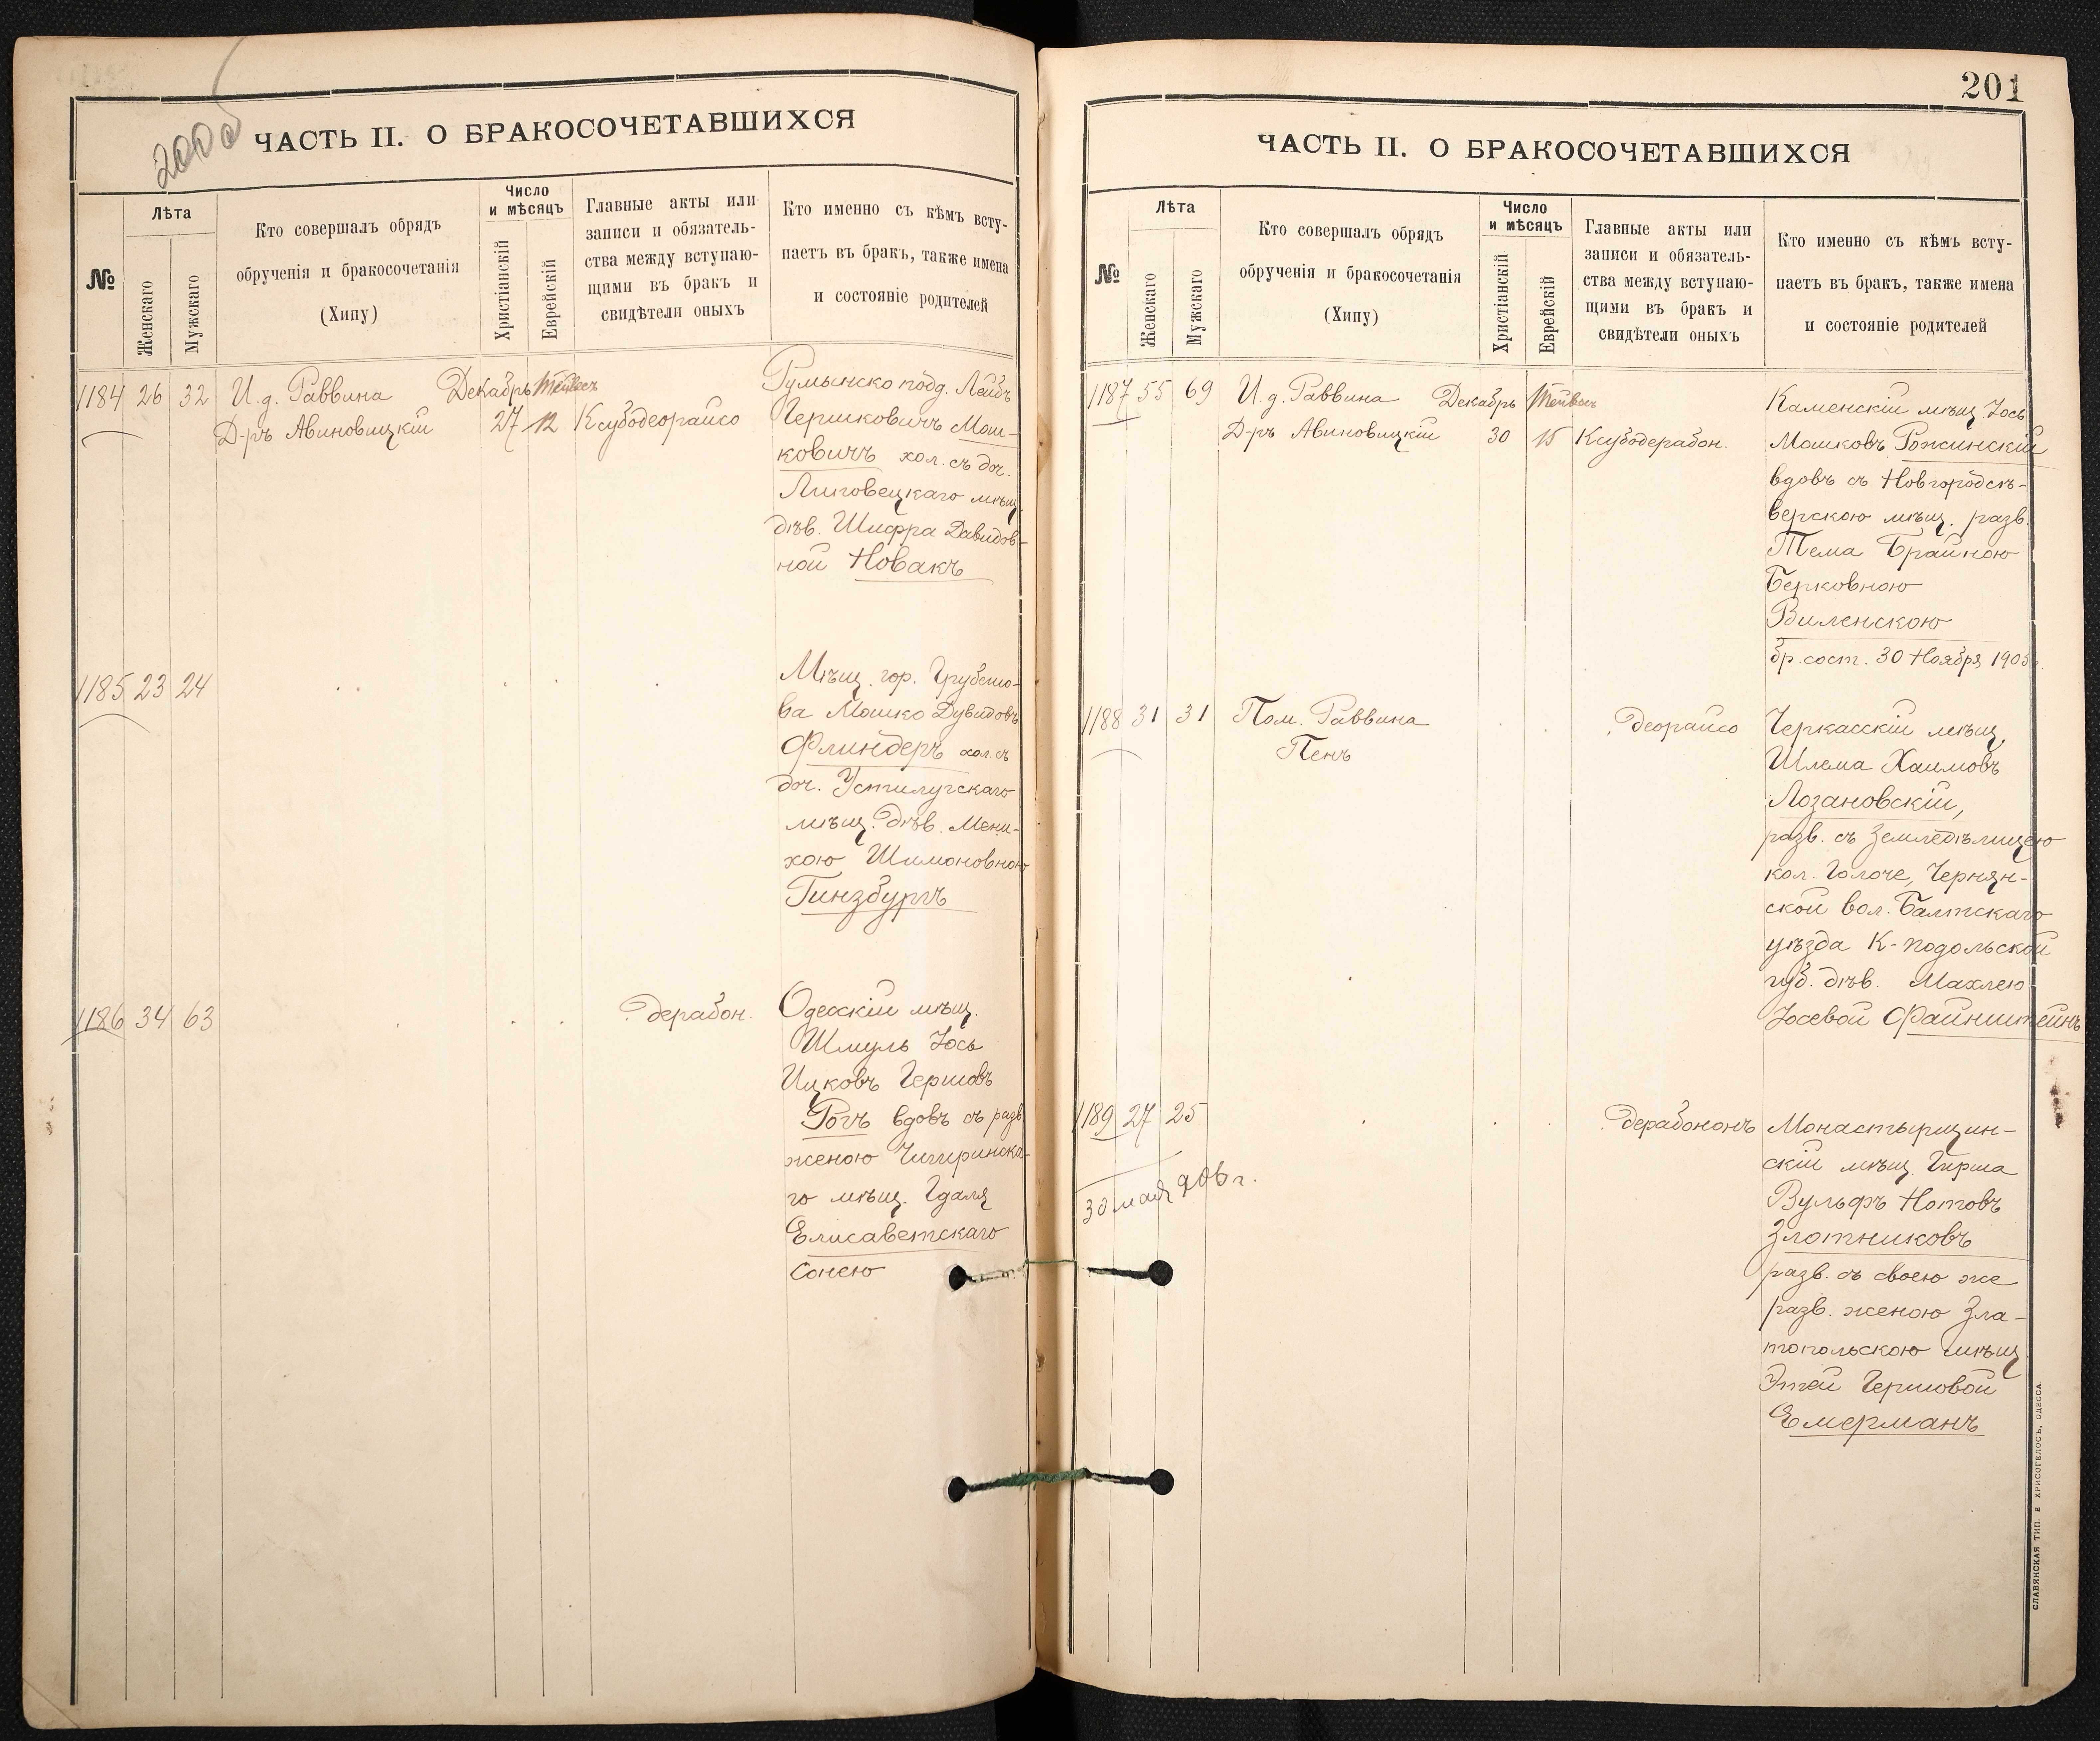 200об
ЧАСТЬ II. О БРАКОСОЧЕТАВШИХСЯ
№
Лѣта
Женскаго
Мужскаго
Кто совершалъ обрядъ
обрученія и бракосочетанія
(Хипу)
Число
и мѣсяцъ
Христіанскій
Еврейскій
Главные акты или
записи и обязатель-
ства между вступаю-
щими въ бракъ и
свидѣтели оныхъ
Кто именно съ кѣмъ всту-
паетъ въ бракъ, также имена
и состояніе родителей
1184 26 32 И.д. Раввина Декабрь Тейвес Румынско подд. Лейбъ
Д-ръ Авиновицкій 27 12 Ксубодеорайсо Гершковичъ Мош-
ковичъ хол. съ доч.
Липовецкаго мѣщ.
дѣв. Шифра Давидов-
ной Новакъ
Мѣщ. гор. Грубешо-
1185 23 24 ва Мошко Дувидовъ
Флиндеръ хол. съ
доч. Устилугскаго
мѣщ. дѣв. Мени-
хою Шимоновною
Гинзбургъ
1186 34 63 дерабон. Одесскій мѣщ.
Шмуль Іось
Ицковъ Гершовъ
Рогъ вдовъ съ разв.
женою Чигиринска-
го мѣщ. Гдаля
Елисаветскаго
Сонею
201
ЧАСТЬ II. О БРАКОСОЧЕТАВШИХСЯ
№
Лѣта
Женскаго
Мужскаго
Кто совершалъ обрядъ
обрученія и бракосочетанія
(Хипу)
Число
и мѣсяцъ
Христіанскій
Еврейскій
Главные акты или
записи и обязатель-
ства между вступаю-
щими въ бракъ и
свидѣтели оныхъ
Кто именно съ кѣмъ всту-
паетъ въ бракъ, также имена
и состояніе родителей
1187 55 69 И.д. Раввина Декабрь Тейвес Каменскій мѣщ. Іось
Д-ръ Авиновицкій 30 15 Ксубодерабон. Мошковъ Рожинскій
вдовъ съ Новгородсѣ-
верскою мѣщ. разв.
Тема Брайною
Берковною
Виленскою
бр. сост. 30 Ноября 1905г.
1188 31 31 Пом. Раввина деорайсо Черкасскій мѣщ.
Пенъ Шлема Хаимовъ
Лозановскій,
разв. съ земледѣлицею
кол. Голоче, Чернян-
ской вол. Балтскаго
уѣзда К-подольской
губ. дѣв. Махлею
Іосевой Файнштейнъ
1189 27 25 дерабононъ Монастырщин-
скій мѣщ. Гирша
30 мая 906 г. Вульфъ Нотовъ
Злотниковъ
разв. съ своею же
разв. женою Зла-
топольскою мѣщ.
Этей Гершовой
Емерманъ
СЛАВЯНСКАЯ ТИП. Е ХРИСОГЕЛОСЪ, ОДЕССА.